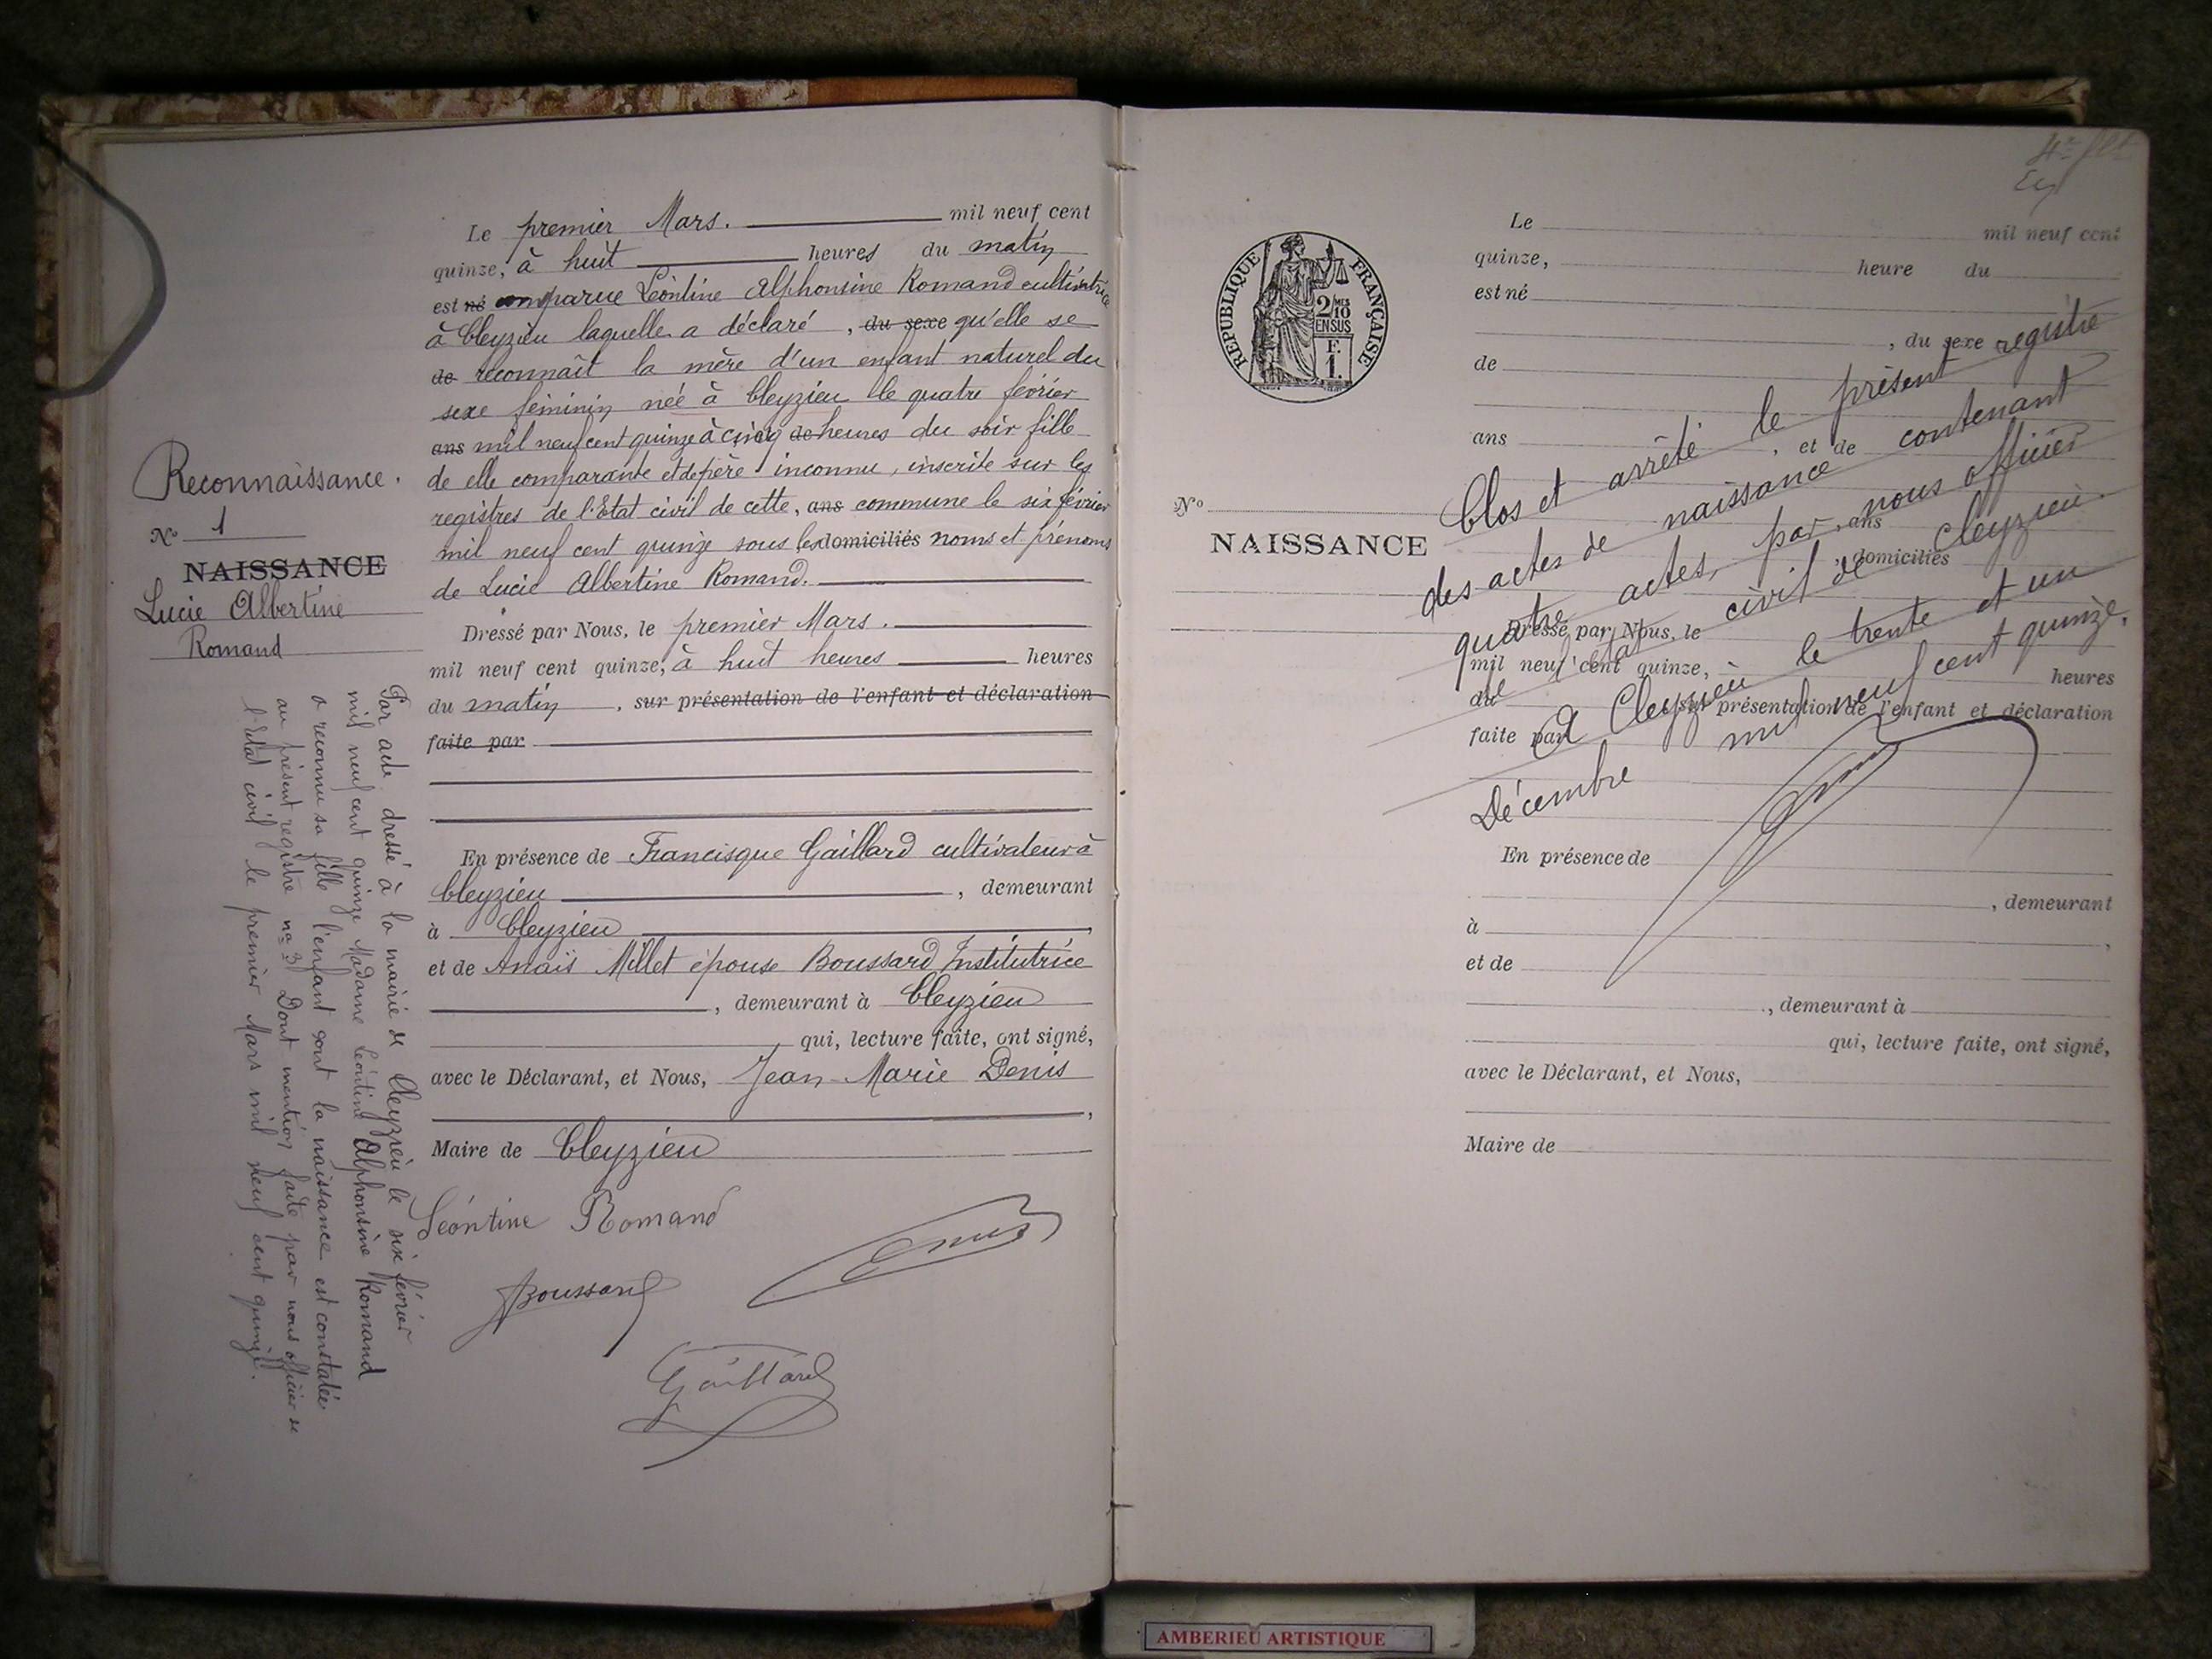 Le premier Mars. mil neuf cent
quinze, à huit heures du matin
est né comparue Léontine Alphonsine Romand cultivatrice
à Cleyzieu laquelle a déclaré, du sexe qu'elle se
de reconnaît la mère d'un enfant naturel du
sexe féminin née à Cleyzieu le quatre février
ans mil neuf cent quinze à cinq de heures du soir fille
de elle comparante et de père inconnu, inscrite sur les
registres de l'Etat civil de cette, ans commune le six février
mil neuf cent quinze sous les domiciliés noms et prénoms
de Lucie Albertine Romand.
Dressé par Nous, le premier Mars.
mil neuf cent quinze, à huit heures heures
du matin, sur présentation de l'enfant et déclaration
faite par
En présence de Francisque Gaillard cultivateur à
Cleyzieu, demeurant
à Cleyzieu,
et de Anais Millet épouse Boussard Institutrice
, demeurant à Cleyzieu
qui, lecture faite, ont signé,
avec le Déclarant, et Nous, Jean-Marie Denis
,
Maire de Cleyzieu
Léontine Romand
Boussard
Denis
Gaillard
Reconnaissance.
N° 1
NAISSANCE
Lucie Albertine
Romand
Par acte dressé à la mairie de Cleyzieu le six février
mil neuf cent quinze Madame Léontine Alphonsine Romand
a reconnu sa fille l'enfant dont la naissance est constatée
au présent registre no 3 Dont mention faite par nous officier de
l'état civil le premier Mars mil neuf cent quinze.
REPUBLIQUE FRANÇAISE
2/10
MES
EN SUS
F.
1.
N°
NAISSANCE
Le mil neuf cent
quinze, heure du
est né
, du sexe
de
ans
, et de
, ans
, domiciliés
Dressé par Nous, le
mil neuf cent quinze, à heures
du, sur présentation de l'enfant et déclaration
faite par
Clos et arrêté le présent registre
des actes de naissance contenant
quatre actes, par nous officier
de l'état civil de Cleyzieu.
A Cleyzieu le trente et un
Décembre mil neuf cent quinze.
Denis
En présence de
, demeurant
à,
et de
, demeurant à
qui, lecture faite, ont signé,
avec le Déclarant, et Nous,
Maire de
AMBERIEU ARTISTIQUE